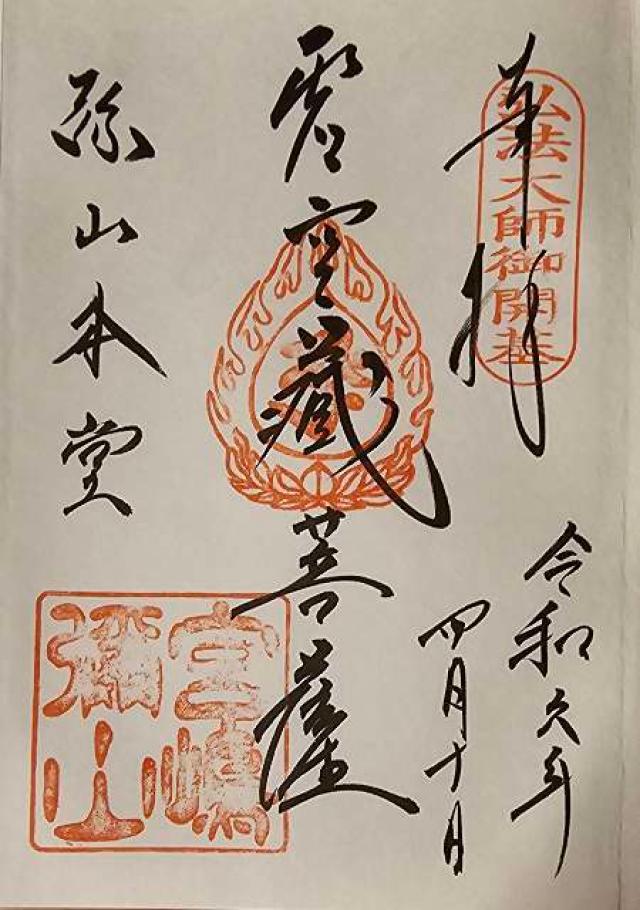 奉拝
弘法大師御開基
令和六年
四月十日
虚空蔵菩薩
弥山本堂
宮嶋
彌山